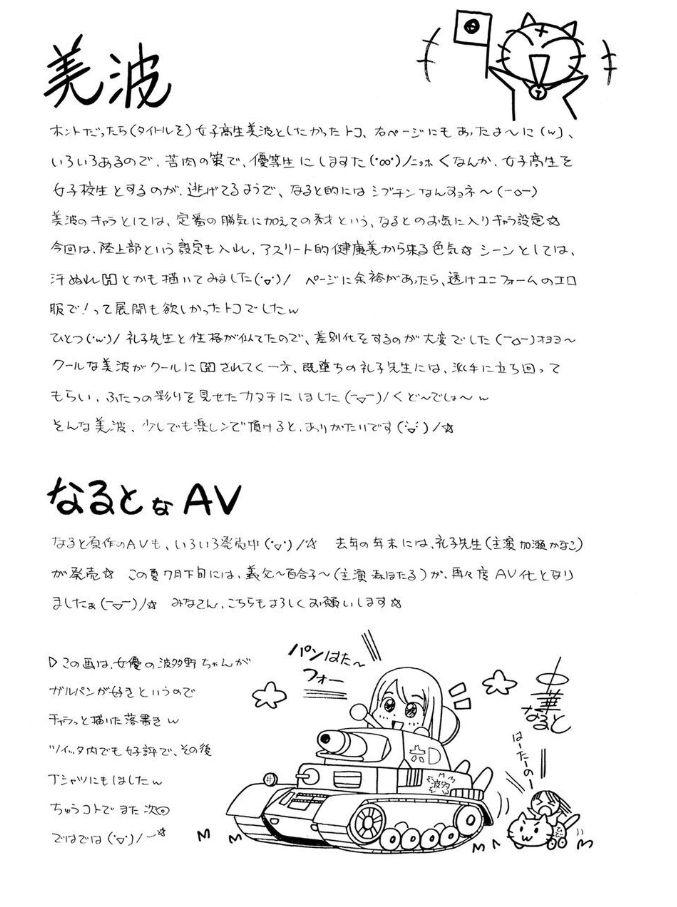 美波
ホントだったら(タイトルを)女子高生美波としたかったトコ、右ページにもあったよーに(w)、
いろいろあるので、苦肉の策で、優等生にしますた(°∞°)/ニッホくなんか、女子高生を
女子校生とするのが、逃げてるようで、なると的にはシブチンなんすョネ〜(ーoー)
美波のキャラとしては、定番の勝気に加えての秀才という、なるとのお気に入りキャラ設定☆
今回は、陸上部という設定も入れ、アスリート的健康美から来る色気☆ シーンとしては、
汗ぬれ囚とかも描いてみました(°▽°)/ ページに余裕があったら、透けユニフォームのエロ
服で!って展開も欲しかったトコでしたw
ひとつ(°w°)/ 礼子先生と性格が似てたので、差別化をするのが大変でした(ーoー)オヨヨ〜
クールな美波がクールに囚されてく一方、既堕ちの礼子先生には、派手に立ち回って
もらい、ふたつの彩りを見せたカタチにしました(ー▽ー)/くど〜でしょ〜w
そんな美波、少しでも楽しンで頂けると、ありがたいです(°▽°)/☆
なるとなAV
なると原作のAVも、いろいろ発売中(°▽°)/☆ 去年の年末には、礼子先生(主演 加瀬かなこ)
が発売☆ この夏7月下旬には、義父〜百合子〜(主演 ほたる)が、再々度AV化となり
ましたぁ(ー▽ー)/☆ みなさん、こちらもよろしくお願いします☆
▷この画は、女優の波多野ちゃんが
ガルパンが好きというので
チャラっと描いた落書きw
ツイッタ内でも好評で、その後
Tシャツにもしましたw
ちゅうコトでまた次回
ではでは(°▽°)/ー☆
パンはた〜
フォー
六D
波多
中華
なると
はーたーのー